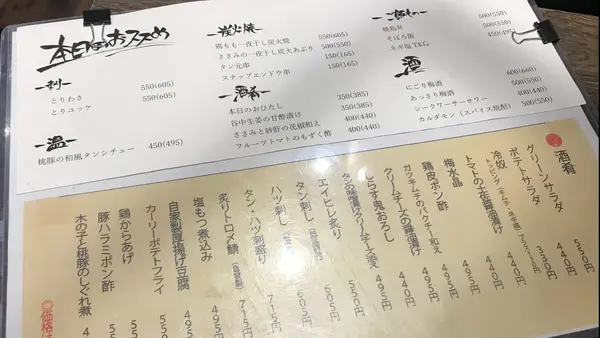 本日のおススメ
一刺一
とりわさ 550(605)
とりユッケ 550(605)
一温一
桃豚の和風タンシチュー 450(495)
一炭火焼一
鶏もも一夜干し炭火焼 550(605)
ささみの一夜干し炭火あぶり 500(550)
タン元串 150(165)
スナップエンドウ串 150(165)
一酒肴一
本日のおひたし 350(385)
谷中生姜の甘酢漬け 350(385)
ささみと砂肝の花椒和え 400(440)
フルーツトマトのもずく酢 400(440)
焼鳥丼 500(550)
そぼろ飯
ネギ塩TKG
酒
にごり梅酒 600(660)
あっさり梅酒 500(550)
シークワーサーサワー 400(440)
カルダモン(スパイス焼酎) 500(550)
酒肴
グリーンサラダ 550円
ポテトサラダ 440円
冷奴 330円
トマトの土佐醤油漬け 440円
梅水晶 440円
鶏皮ポン酢 440円
ガツキムチのパクチー和え 495円
クリームチーズの醤油漬け 495円
しらす鬼おろし 495円
エイヒレ炙り
タン刺し
ハツ刺し
タン・ハツ刺盛り
炙りトロ〆鯖
塩もつ煮込み
自家製厚揚げ豆腐
カーリーポテトフライ
鶏からあげ
豚ハラミポン酢
木の子と桃豚のしぐれ煮